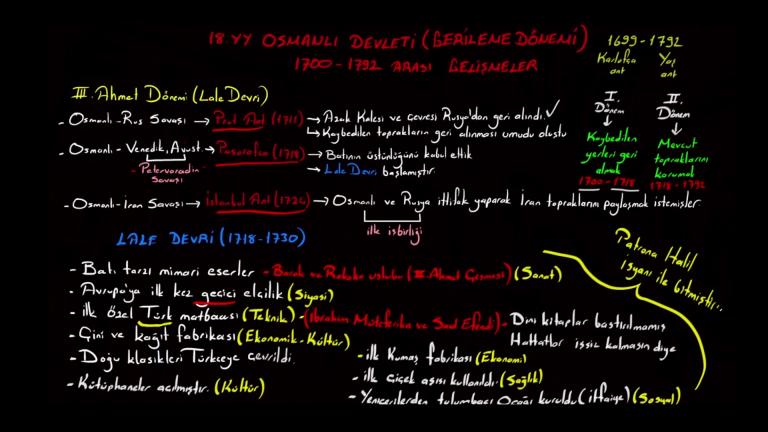 18.YY OSMANLI DEVLETİ (GERİLEME DÖNEMİ)
1700-1792 ARASI GELİŞMELER
1699-1792
Karlofça ant
Yaş ant
I. Dönem
II. Dönem
Kaybedilen yerleri geri almak
Mevcut toprakları korumak
1700-1718
1718-1792
III. Ahmet Dönemi (Lale Devri)
- Osmanlı-Rus Savaşı → Prut Ant (1711) → Azak Kalesi ve Çevresi Rusya'dan geri alındı. ✓
→ Kaybedilen toprakların geri alınması umudu oluştu
- Osmanlı-Venedik, Avust. → Pasarofça (1718) → Batının üstünlüğünü kabul ettik
- Petervaradin Savaşı
→ Lale Devri başlamıştır.
- Osmanlı-İran Savaşı → İstanbul Ant (1724) → Osmanlı ve Rusya ittifak yaparak İran topraklarını paylaşmak istemişler
ilk işbirliği
LALE DEVRİ (1718-1730)
Patrona Halil isyanı ile bitmiştir...
- Batı tarzı mimari eserler - Barok ve Rokoko üslubu (III. Ahmet Çeşmesi) (Sanat)
- Avrupa'ya ilk kez geçici elçilik (Siyasi)
- ilk özel Türk matbaası (Teknik) - (İbrahim Müteferrika ve Said Efendi) → Dini kitaplar bastırılmamış
Hattatlar işsiz kalmasın diye
- Çini ve kağıt fabrikası (Ekonomik-Kültür)
- Doğu klasikleri Türkçeye çevrildi.
- Kütüphaneler açılmıştır. (Kültür)
- ilk Kumaş fabrikası (Ekonomi)
- ilk çiçek aşısı kullanıldı. (Sağlık)
- Yeniçerilerden tulumbacı Ocağı kuruldu (itfaiye) (Sosyal)